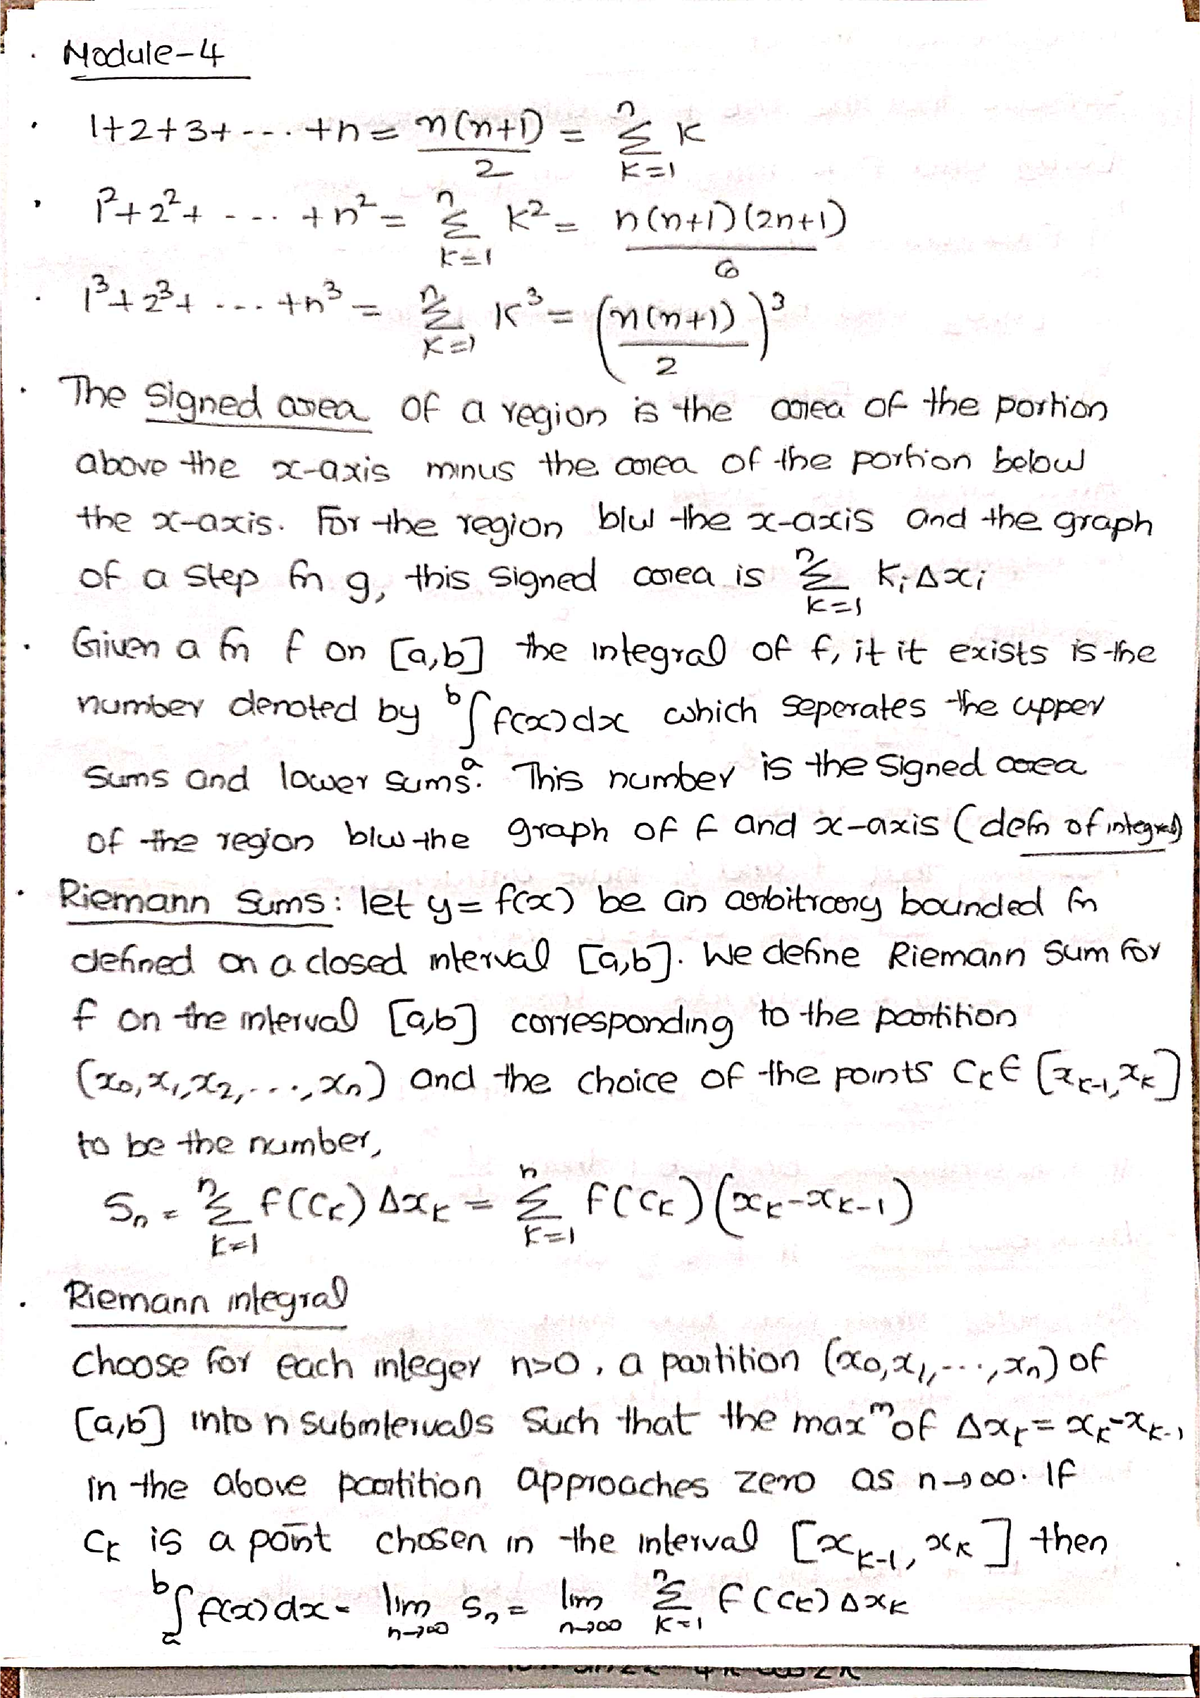 . Module-4
. 1+2+3+---+n = n(n+1)/2 = n Σ k=1 K
. 1²+2²+ - - - . +n² = n Σ k=1 K² = n(n+1)(2n+1)/6
. 1³+2³+ ---. +n³ = n Σ K=1 K³ = (n(n+1)/2)³
. The signed area of a region is the area of the portion
above the x-axis minus the area of the portion below
the x-axis. For the region b/w the x-axis and the graph
of a step fn g, this signed area is n Σ K=1 Kᵢ Δxᵢ
. Given a fn f on [a,b] the integral of f, it it exists is the
number denoted by b∫a f(x)dx which seperates the upper
sums and lower sums. This number is the signed area
of the region b/w the graph of f and x-axis (defn of integral)
. Riemann Sums: let y = f(x) be an arbitrary bounded fn
defined on a closed interval [a,b]. We define Riemann sum for
f on the interval [a,b] corresponding to the partition
(x₀,x₁,x₂,...,xₙ) and the choice of the points Cₖ ∈ [xₖ₋₁,xₖ]
to be the number,
Sₙ = n Σ k=1 f(Cₖ) Δxₖ = n Σ k=1 f(Cₖ)(xₖ-xₖ₋₁)
. Riemann integral
Choose for each integer n>0, a partition (x₀,x₁,---,xₙ) of
[a,b] into n subintervals such that the maxᵐ of Δxₖ = xₖ-xₖ₋₁
in the above partition approaches zero as n→∞. If
Cₖ is a point chosen in the interval [xₖ₋₁, xₖ] then
b∫a f(x)dx = lim n→∞ Sₙ = lim n→∞ n Σ K=1 f(Cₖ) Δxₖ